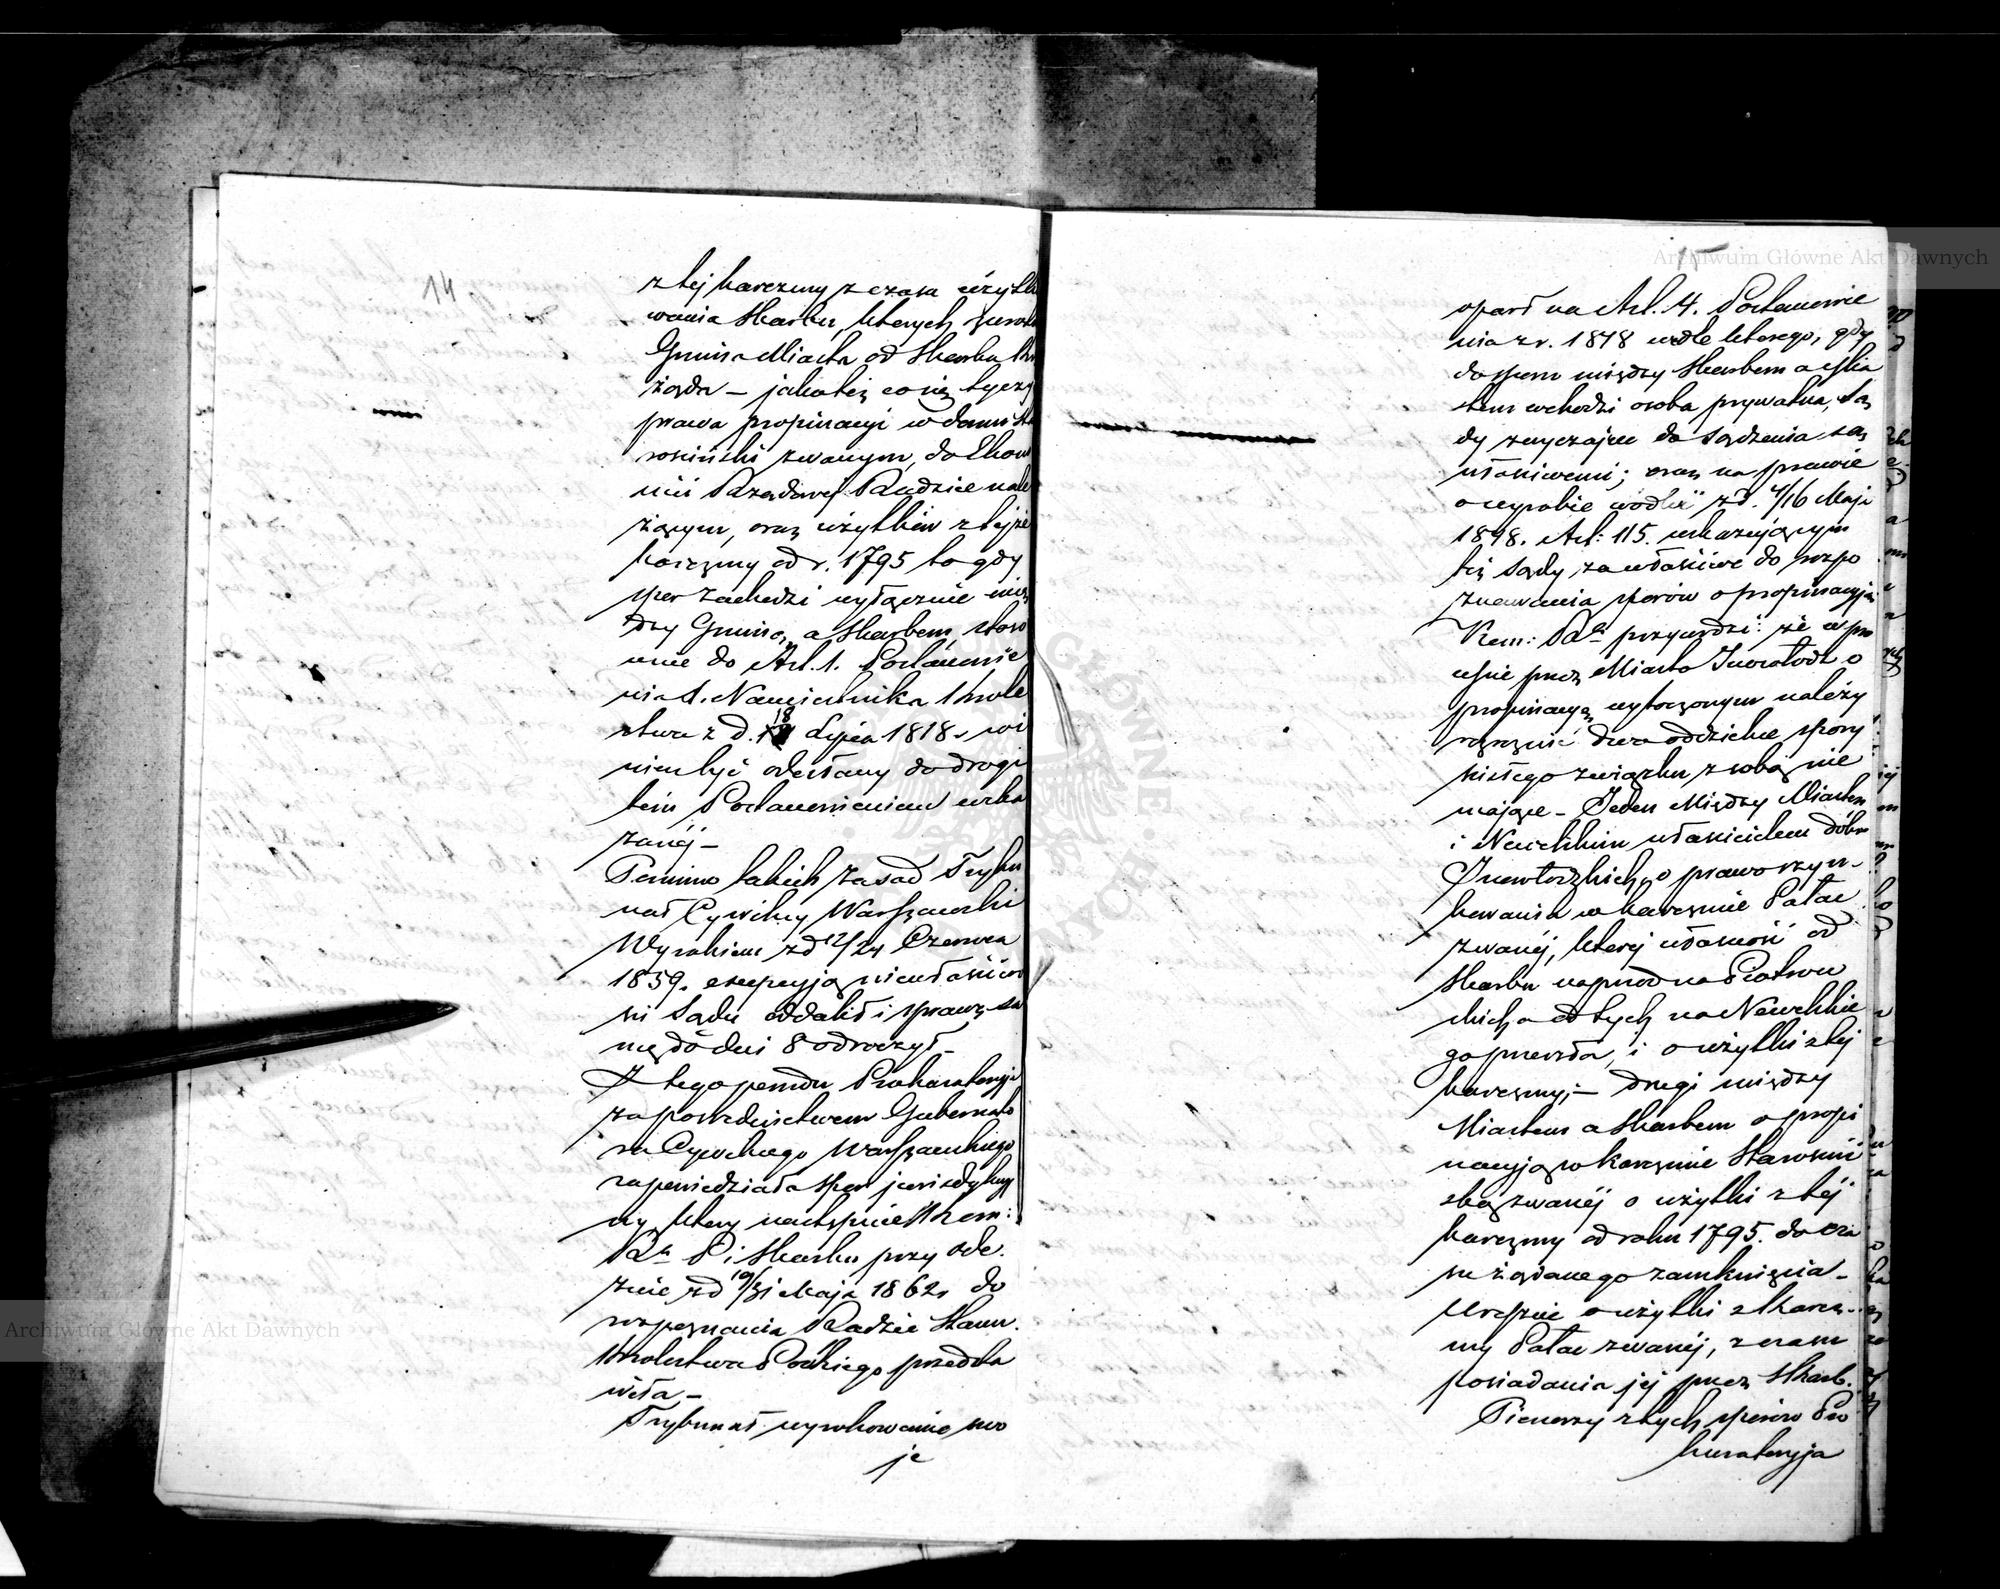 14
z tej karczmy z czasu użytko
wania Skarbu, których zwrotu
Gmina Miasta od Skarbu
żąda – jakoteż co się tyczy
prawa propinacyi w domu Sta
rościński zwanym, do Ekono
mii Rządowej należ
żącym, oraz użytków z tejże
karczmy od r. 1795 to gdy
spor zachodzi wyłącznie mię
dzy Gminą, a Skarbem, stoso
wnie do Art. 1. Postanowie
nia X. Namiestnika Króle
stwa z d. 18 Lipca 1818 r. wi
nien być odesłany do drogi
tém Postanowieniem wska
zanéj –
Pomimo takich zasad Trybu
nał Cywilny Warszawski
Wyrokiem z d 12/24 Czerwca
1859. excepcyją niewłaściwo
ści Sądu oddalił i sprawę sa
mę do dni 8 odroczył –
Z tego powodu Prokuratoryja
za pośrednictwem Gubernato
ra Cywilnego Warszawskiego
zapowiedziała spor jurisdykcyj
ny, który następnie Kom:
Rz. P. i Skarbu przy ode.
zwie z d 19/31 Maja 1862 r. do
rozpoznania Radzie Stanu.
Królestwa Polskiego przedsta
wiła –
Trybunał wyrokowanie swo
je
15
oparł na Art. 4. Postanowie
nia z r. 1818 wedle którego, gdy
do sporu między Skarbem a Mia
stem wchodzi osoba prywatna, Są
dy zwyczajne do sądzenia są
właściwemi; oraz na prawie
o wyrobie wódki z d. 4/16 Maja
1848. Art: 115. wskazującym
też Sądy za właściwe do rozpo
znawania sporów o propinacyją
Kom: Rz. przywodzi: że w pro
cesie przez Miasto Inowłodz o
propinacyą wytoczonym należy
rozróżnić dwa oddzielne spory
ścisłego związku z sobą nie
mające – Jeden Między Miastem
i Newelskim właścicielem dóbr
Inowłodzkich, o prawo szyn-
kowania w karczmie Pałac
zwanéj, której własność od
Skarbu naprzód na Piotrow
skich, a od tych na Newelskie
go przeszła, i o użytki z tej
karczmy; – drugi między
Miastem a Skarbem o propi
nacyją w karczmie Starościń
ską zwanéj o użytki z téj
karczmy od roku 1795. do cza
su żądanego zamknięcia –
wreszcie o użytki z Karcz-
my Pałac zwanéj, z czasu
posiadania jej przez Skarb.
Pierwszy z tych sporów Pro
kuratoryja
Archiwum Główne Akt Dawnych
Archiwum Główne Akt Dawnych